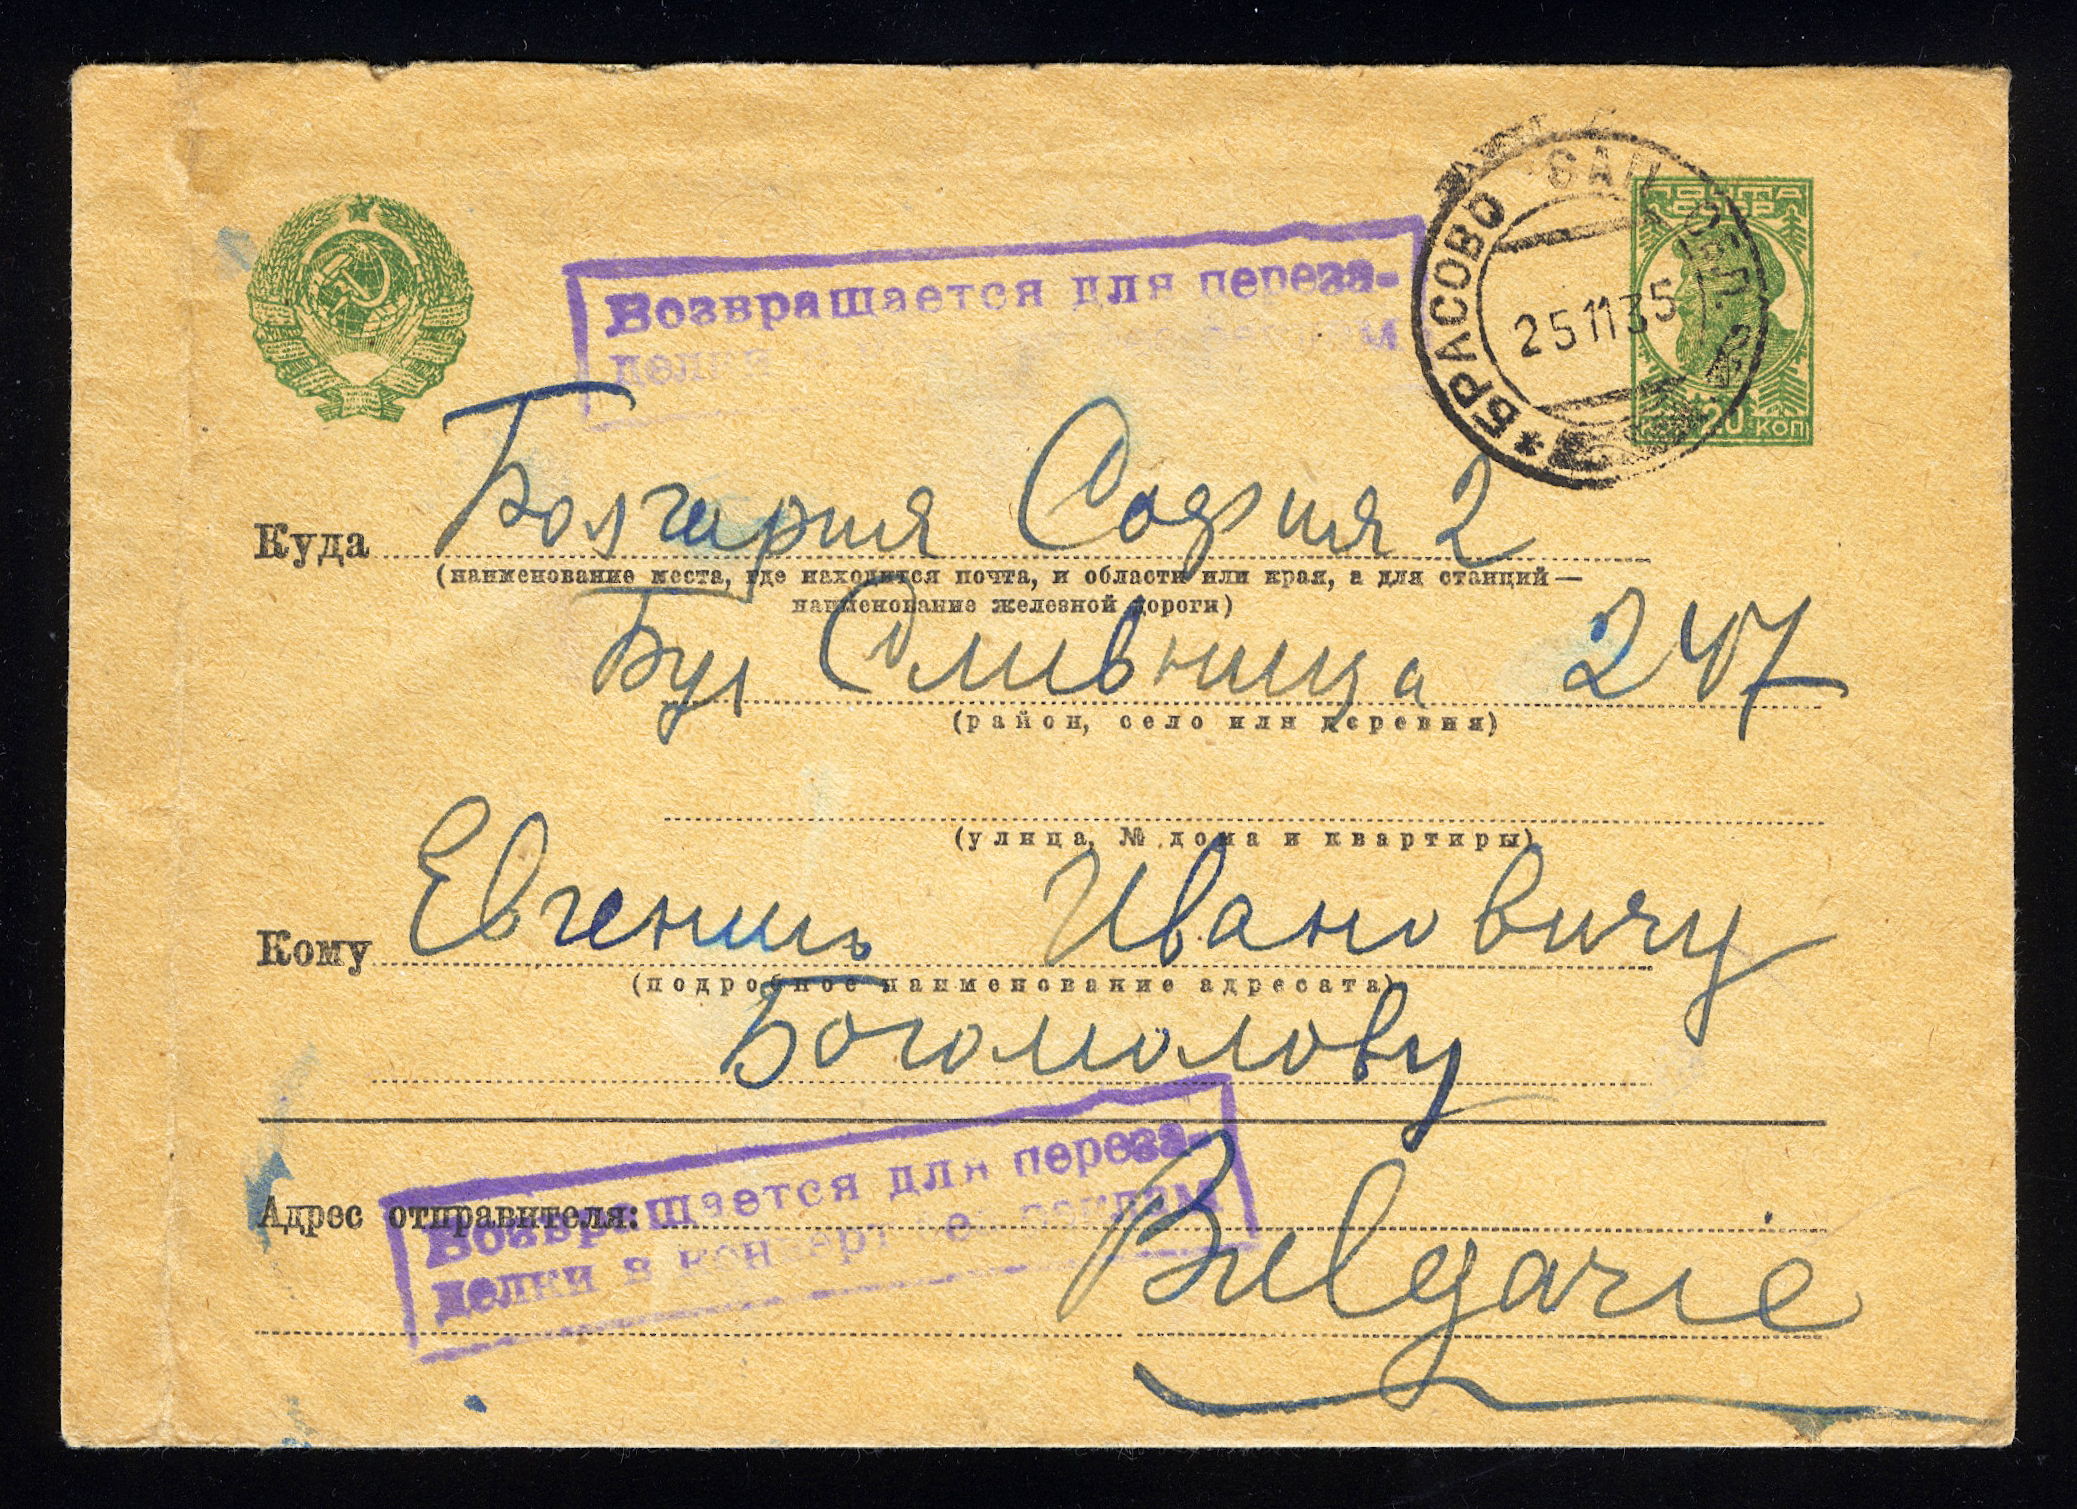 БРАСОВО ЗАП. ОБЛ.
25 11 35
ПОЧТА
СССР
КОП 20 КОП
Возвращается для переза-
делки
Болгария София 2
Куда
(наименование места, где находится почта, и области или края, а для станций—
наименование железной дороги)
Бул Сливница 247
(район, село или деревня)
(улица, № дома и квартиры)
Кому Евгению Ивановичу
(подробное наименование адресата)
Богомолову
Адрес отправителя:
Возвращается для переза-
делки в конверт
Bulgarie